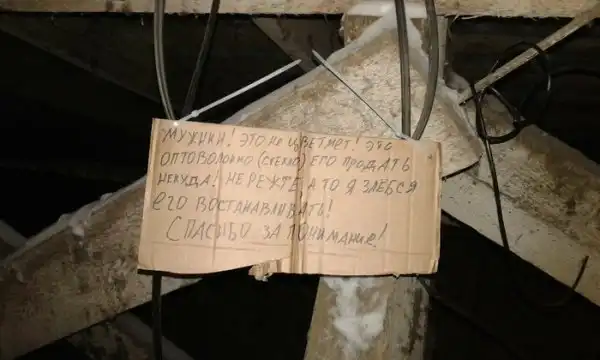 МУЖИКИ! ЭТО не ЦВЕТМЕТ! ЭТО
ОПТОВОЛОКНО (СТЕКЛО) ЕГО ПРОДАТЬ
НЕКУДА! НЕ РЕЖТЕ А ТО Я ЗАЕБСЯ
ЕГО ВОСТАНАВЛИВАТЬ!
СПАСИБО ЗА ПОНИМАНИЕ!